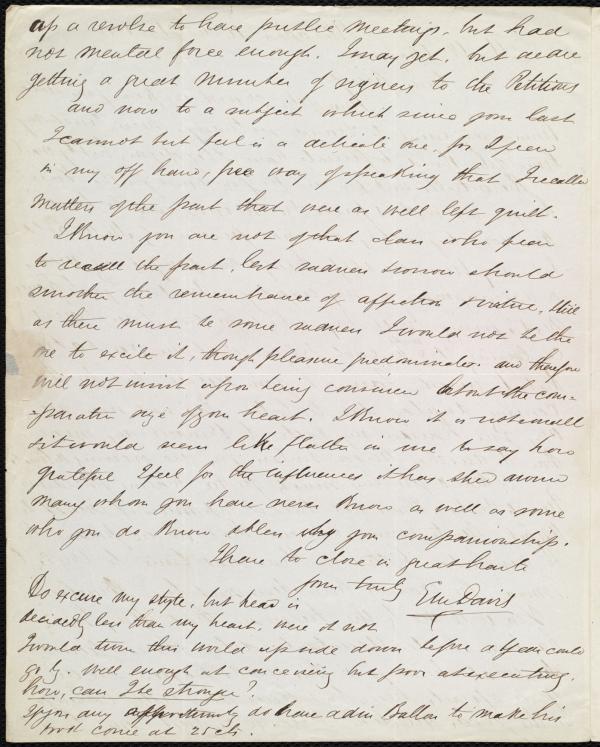 up a resolve to have public meetings, but had
not mental force enough. I may yet, but we are
getting a great number of signers to the Petitions
and now to a subject which since your last
I cannot but feel is a delicate one, for I fear
in my off hand, free way of speaking that I recalled
matters of the past that were as well left quiet.
I know you are not of that class who fear
to recall the past, lest sadness & sorrow should
smother the remembrance of affection & virtue, still
as there must be some sadness I would not be the
one to excite it, though pleasure predominates and therefore
will not insist upon being convinced about the com-
-parative size of your heart. I know it is not small
& it would seem like flattery in me to say how
grateful I feel for the influences it has shed around
many whom you have never known as well as some
who you do know & bless by your companionship.
I have to close in great haste
yours truly E M Davis
Do excuse my style, but head is
decidedly less than my heart, were it not
I would turn this world upside down before a year could
go by. Well enough at conceiving but poor at executing.
how, can I be stronger?
Upon any opportunity do have Adin Ballou to make his
work come at 25 cts.